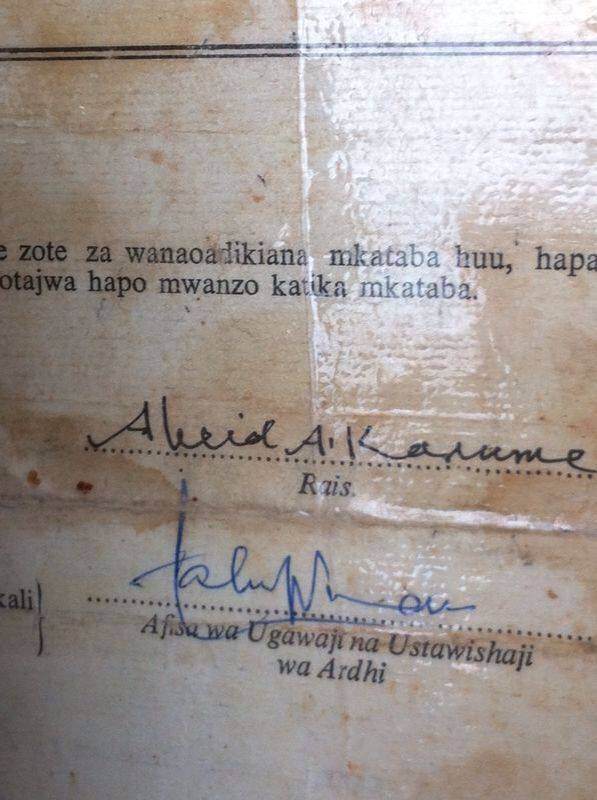 e zote za wanaoadikiana mkataba huu, hapa
otajwa hapo mwanzo katika mkataba.
Abeid A. Karume
Rais.
kali
Afisa wa Ugawaji na Ustawishaji
wa Ardhi